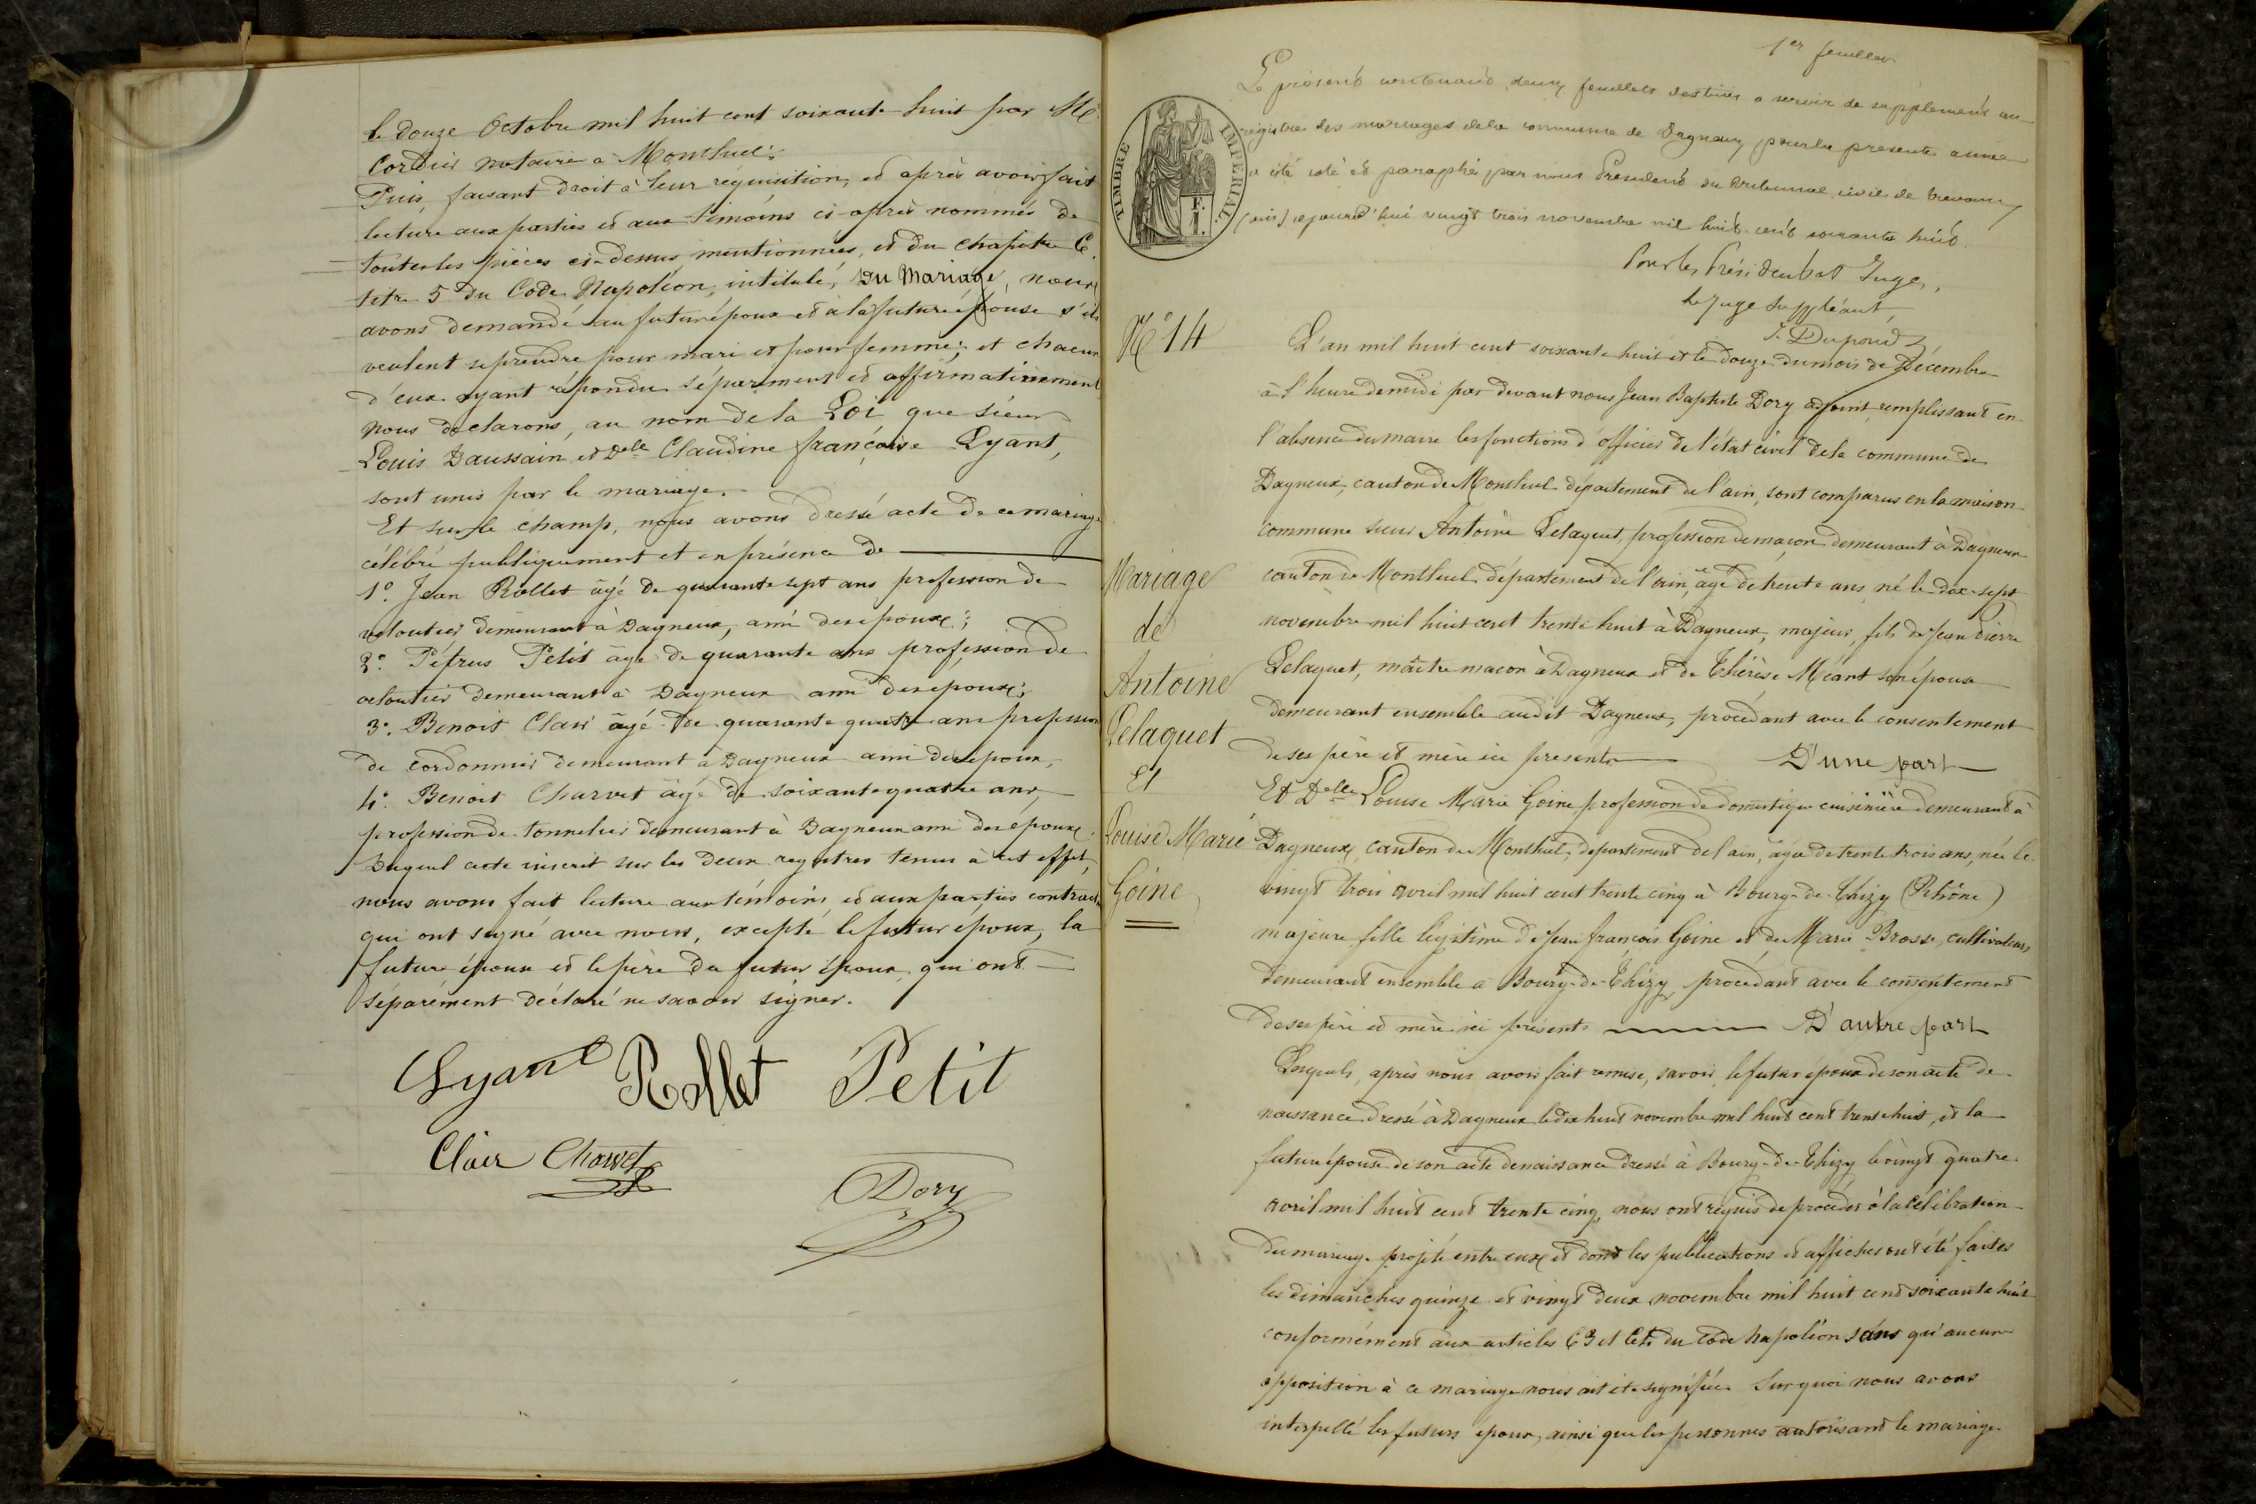 le douze Octobre mil huit cent soixante huit par Me
Cordier notaire à Montluel;
Puis, faisant droit à leur réquisition, et après avoir fait
lecture aux parties et aux témoins ci-après nommés de
toutes les pièces ci-dessus mentionnées, et du chapitre 6
titre 5 du Code Napoléon, intitulé, Du Mariage, nous
avons demandé au futur époux et à la future épouse s'ils
veulent se prendre pour mari et pour femme; et chacun
d'eux ayant répondu séparément et affirmativement
nous déclarons, au nom de la Loi que sieur
Louis Daussain et Delle Claudine françoise Lyant,
sont unis par le mariage.
Et sur le champ, nous avons dressé acte de ce mariage
célébré publiquement et en présence de
1° Jean Rollet âgé de quarante sept ans profession de
veloutier demeurant à Dagneux, ami des époux;
2° Pétrus Petit âgé de quarante ans profession de
veloutier demeurant à Dagneux ami des époux;
3° Benoit Clair âgé de quarante quatre ans profession
de cordonnier demeurant à Dagneux ami des époux,
4° Benoit Charvet âgé de soixante quatre ans,
profession de tonnelier demeurant à Dagneux ami des époux.
Duquel acte inscrit sur les deux registres tenus à cet effet,
nous avons fait lecture aux témoins et aux parties contract
qui ont signé avec nous, excepté le futur époux, la
future épouse et le père du futur époux, qui ont
séparément déclaré ne savoir signer.
Lyant Rollet Petit
Clair Charvet
Dory
1er feuillet
Le présent contenant deux feuillets destinés à servir de supplément au
registre des mariages de la commune de Dagneux pour la présente année
a été coté et paraphé par nous Président du tribunal civil de Trévoux
(ain) ce jourd'hui vingt trois novembre mil huit cent soixante huit.
TIMBRE IMPERIAL
Pour le Président et Juge,
le Juge Suppléant,
J. Dupond
N° 14
L'an mil huit cent soixante huit et le douze du mois de Décembre
à l'heure de midi par devant nous Jean Baptiste Dory adjoint remplissant en
l'absence du maire les fonctions d'officier de l'état civil de la commune de
Dagneux, canton de Montluel département de l'ain, sont comparus en la maison
commune sieur Antoine Pelaquet, profession de maçon demeurant à Dagneux
canton de Montluel département de l'ain, âgé de trente ans, né le dix-sept
novembre mil huit cent trente huit à Dagneux, majeur, fils de Jean Pierre
Pelaquet, maître maçon à Dagneux et de Thérèse Méant son épouse
demeurant ensemble audit Dagneux, procédant avec le consentement
de ses père et mère ici présents D'une part
Mariage
de
Antoine
Pelaquet
et
Louise Marie
Goine
Et Delle Louise Marie Goine profession de domestique cuisinière demeurant à
Dagneux, canton de Montluel, département de l'ain, âgée de trente trois ans, née le
vingt trois avril mil huit cent trente cinq à Bourg-de-Thizy (Rhône)
majeure fille légitime de Jean françois Goine et de Marie Brosse, cultivateurs,
demeurant ensemble à Bourg-de-Thizy procédant avec le consentement
de ses père et mère ici présents D'autre part
Lesquels, après nous avoir fait remise, savoir, le futur époux de son acte de
naissance dressé à Dagneux le dix huit novembre mil huit cent trente huit, et la
future épouse de son acte de naissance dressé à Bourg-de-Thizy le vingt quatre
avril mil huit cent trente cinq, nous ont requis de procéder à la célébration
du mariage projeté entre eux et dont les publications et affiches ont été faites
les dimanches quinze et vingt deux novembre mil huit cent soixante huit
conformément aux articles 63 et 64 du Code Napoléon sans qu'aucune
opposition à ce mariage nous ait été signifiée. Sur quoi nous avons
interpellé les futurs époux, ainsi que les personnes autorisant le mariage